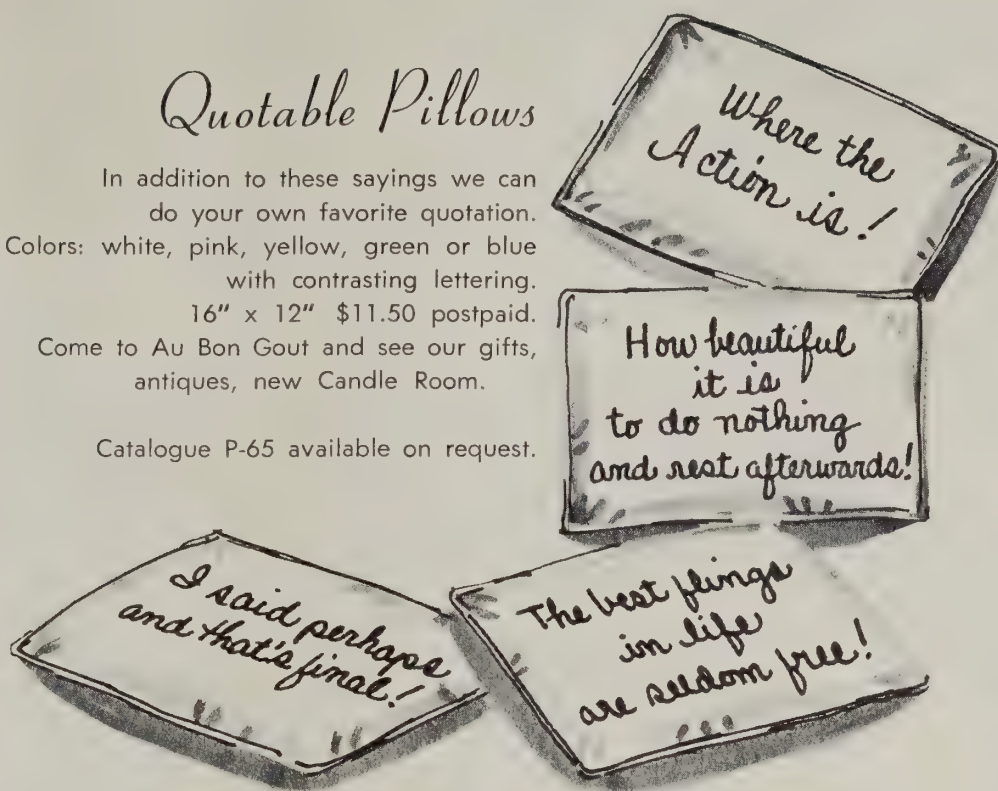 Quotable Pillows
In addition to these sayings we can
do your own favorite quotation.
Colors: white, pink, yellow, green or blue
with contrasting lettering.
16" x 12" $11.50 postpaid.
Come to Au Bon Gout and see our gifts,
antiques, new Candle Room.
Catalogue P-65 available on request.
Where the
Action is!
How beautiful
it is
to do nothing
and rest afterwards!
I said perhaps
and that's final!
The best flings
in life
are seldom free!